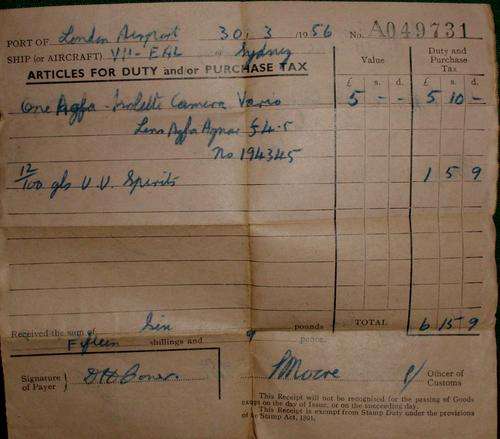 PORT OF London Airport 30. 3 /1956 No. A049731
SHIP (or AIRCRAFT) VH-EAL Sydney
ARTICLES FOR DUTY and/or PURCHASE TAX Value Duty and Purchase Tax
£ s. d. £ s. d.
One Agfa - Isolette Camera Vario 5 - - 5 10 -
Lens Agfa Agnar f4.5
No 194345
12/100 gls U.V. Spirits 1 5 9
TOTAL 6 15 9
Received the sum of Six pounds
Fifteen shillings and 9 pence.
Signature of Payer
Moore Officer of Customs
This Receipt will not be recognised for the passing of Goods
except on the day of Issue, or on the succeeding day.
This Receipt is exempt from Stamp Duty under the provisions
of the Stamp Act, 1891.